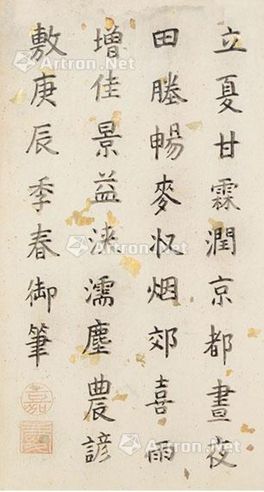 立夏甘霖潤京都晝夜
田塍暢麥収烟郊喜雨
增佳景益浹濡塵農諺
敷庚辰季春御筆
嘉
Artron.Net